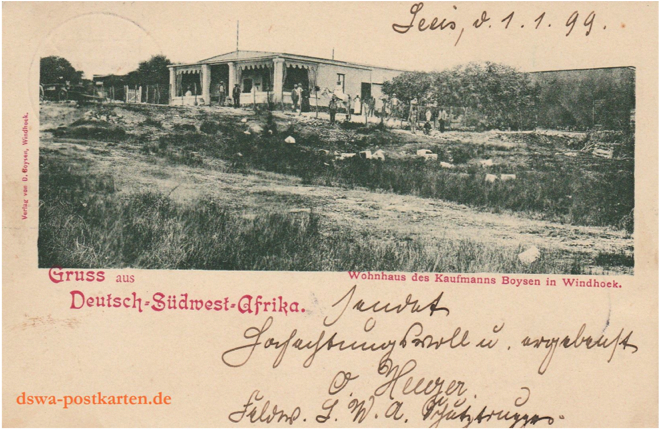 Seeis, d. 1.1.99.
Verlag von G. Boysen, Windhoek.
Gruss aus
Deutsch-Südwest-Afrika.
Wohnhaus des Kaufmanns Boysen in Windhoek.
sendet
Hochachtungsvoll u. ergebenst
O.
Feldw. S. W. A. Schutztruppe.
dswa-postkarten.de